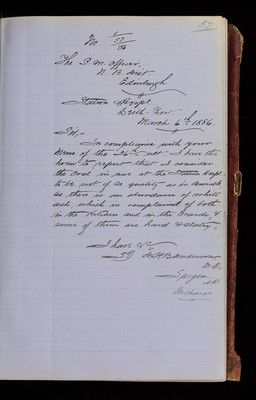 57
No. 57
/86
The P. M. Officer,
N. B. Dist.
Edinburgh
Station Hospl.
Leith Fort
March 6th 1886.
Sir,-
In compliance with your
memo of the inst. I have the
honor to report that I consider
the coal in use at the Station Hospl.
to be not of as quality as in
as there is an abundance of white
ash, which is complained of both
in the Kitchen and in the Wards, &
some of them are hard & slaty.
I have &c
M.D.
Surgeon
In charge